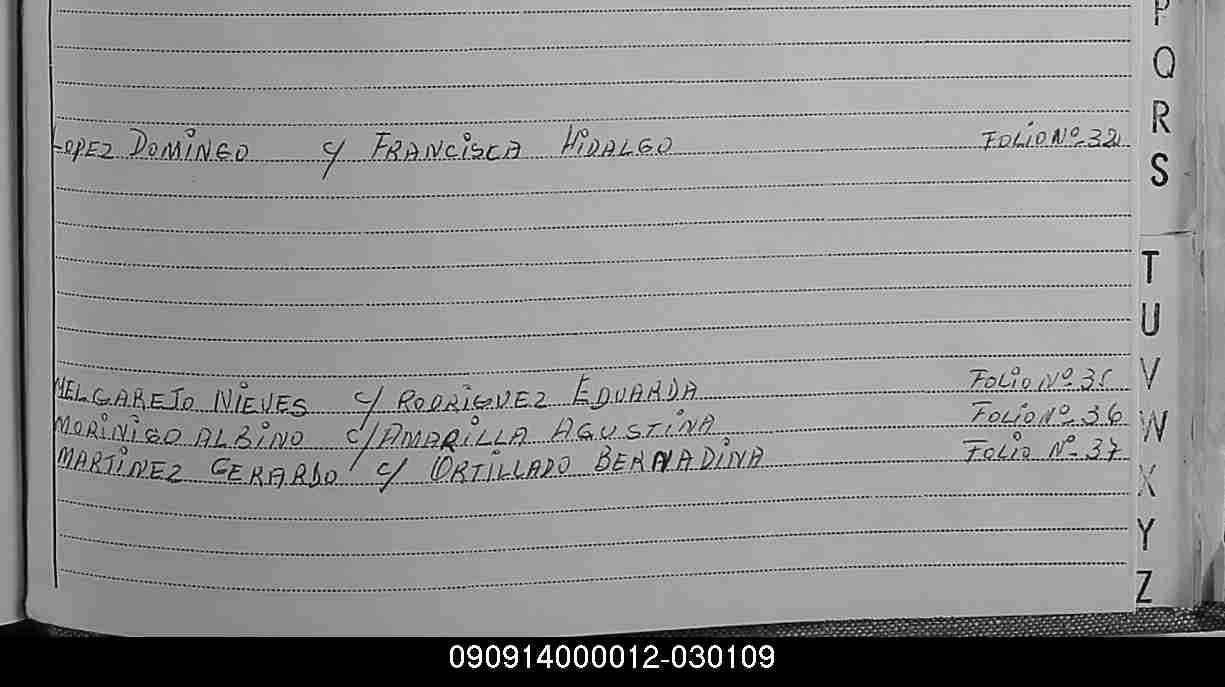 P
Q
R
LOPEZ DOMINGO c/ FRANCISCA HIDALGO FOLIO Nº 32
S
T
U
MELGAREJO NIEVES c/ RODRIGUEZ EDUARDA FOLIO Nº 35
V
MORINIGO ALBINO c/ AMARILLA AGUSTINA FOLIO Nº 36
W
MARTINEZ GERARDO c/ ORTILLADO BERNADINA FOLIO Nº 37
X
Y
Z
090914000012-030109